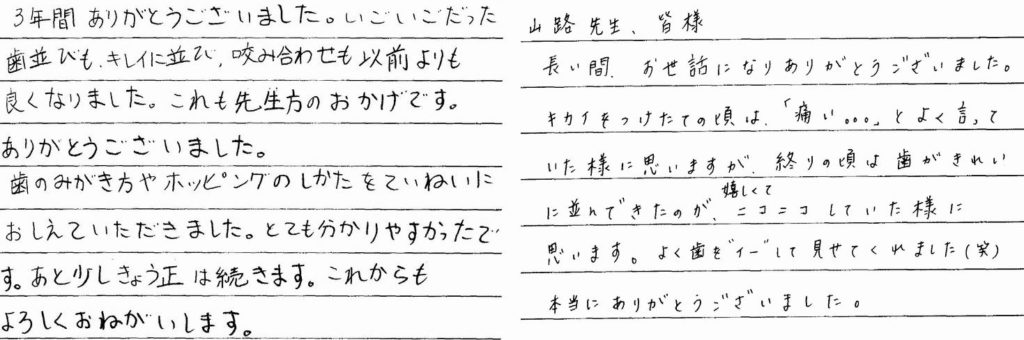 3年間ありがとうございました。いごいごだった
歯並びも、キレイに並び、咬み合わせも以前よりも
良くなりました。これも先生方のおかげです。
ありがとうございました。
歯のみがき方やホッピングのしかたをていねいに
おしえていただきました。とても分かりやすかったで
す。あと少しきょう正は続きます。これからも
よろしくおねがいします。
山路先生、皆様
長い間、お世話になりありがとうございました。
キカイをつけたての頃は、「痛い。。。」とよく言って
いた様に思いますが、終りの頃は歯がきれい
嬉しくて
に並んできたのが、ニコニコしていた様に
思います。よく歯を"イー"して見せてくれました(笑)
本当にありがとうございました。